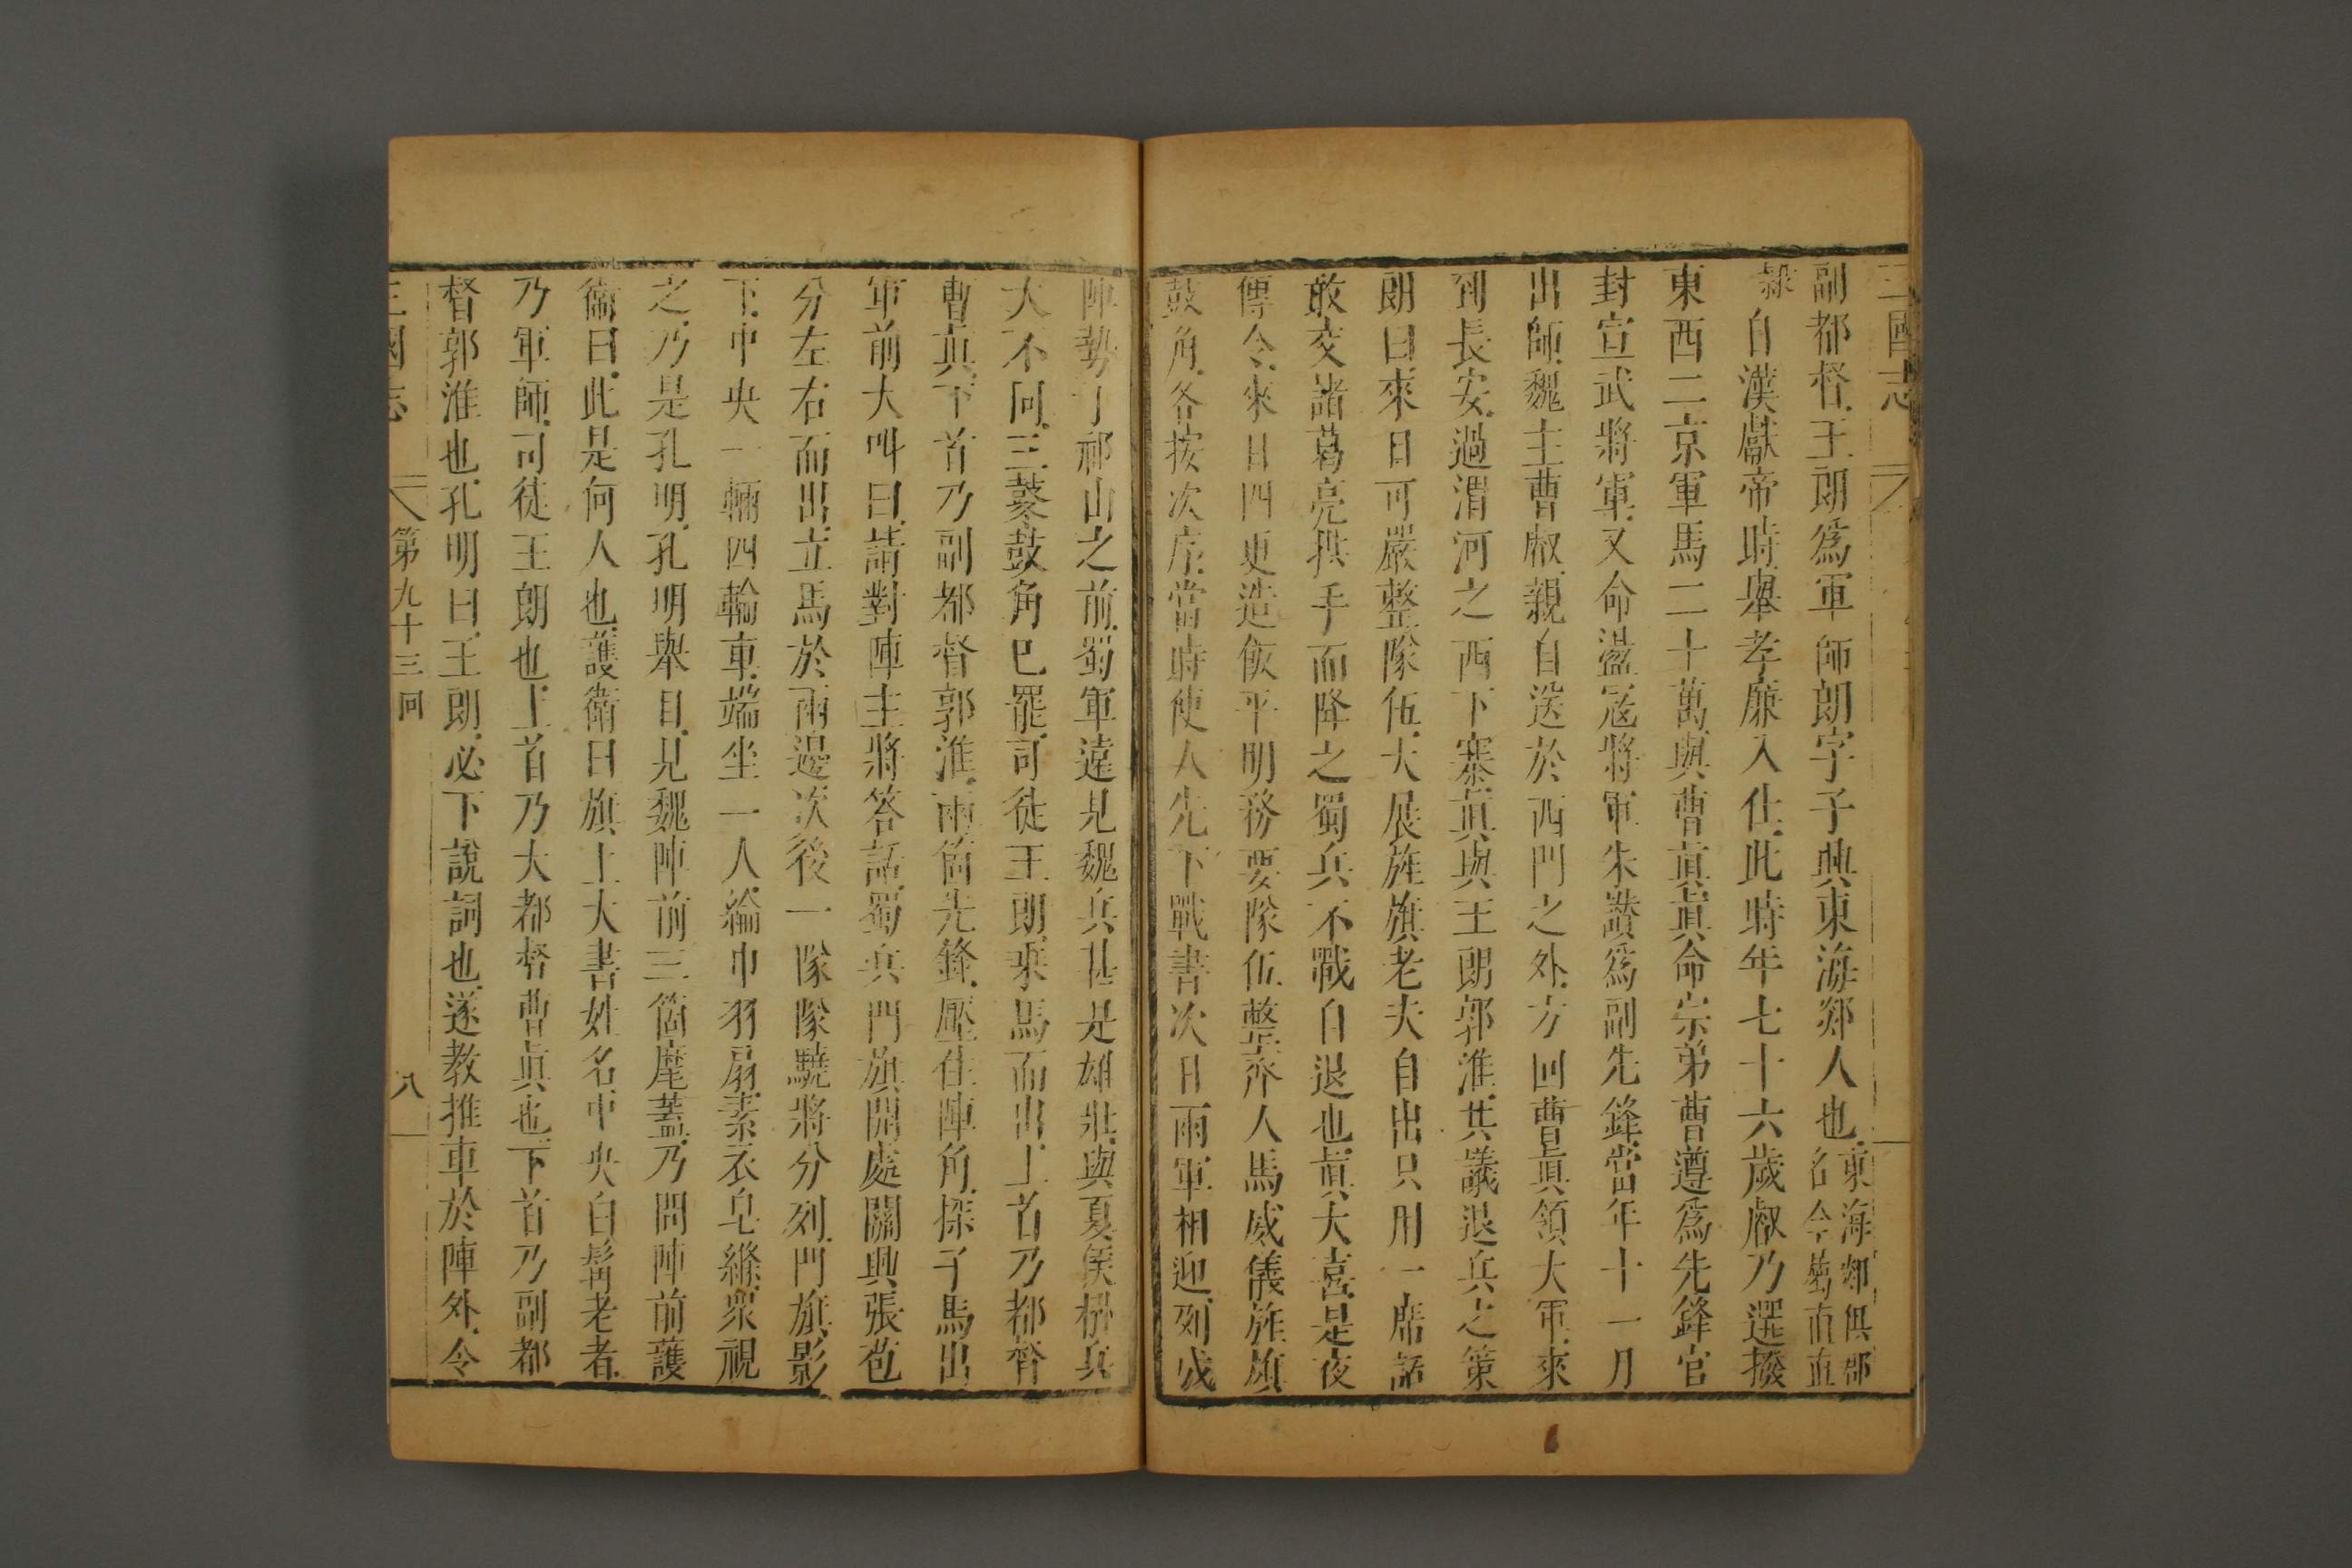 三國志
副都督王朗爲軍師朗字子興東海郯人也東海郯俱郡
名今
隸
自漢獻帝時舉孝廉入仕此時年七十六歲叡乃選撥
東西二京軍馬二十萬與曹真真命宗弟曹遵爲先鋒官
封宣武將軍又命盪寇將軍朱讚爲副先鋒當年十一月
出師魏主曹叡親自送於西門之外方回曹真領大軍來
到長安過渭河之西下寨真與王朗郭淮共議退兵之策
朗曰來日可嚴整隊伍大展旌旗老夫自出只用一席話
敢交諸葛亮拱手而降之蜀兵不戰自退也真大喜是夜
傳令來日四更造飯平明務要隊伍整齊人馬威儀旌旗
鼓角各按次序當時使人先下戰書次日兩軍相迎列成
陣勢于祁山之前蜀軍遠見魏兵甚是雄壯與夏侯楙兵
大不同三鼕鼓角已罷司徒王朗乘馬而出上首乃都督
曹真下首乃副都督郭淮兩箇先鋒壓住陣角探子馬出
軍前大叫曰請對陣主將答話蜀兵門旗開處關興張苞
分左右而出立馬於兩邊次後一隊隊驍將分列門旗影
下中央一輛四輪車端坐一人綸巾羽扇素衣皂縧衆視
之乃是孔明孔明舉目見魏陣前三箇麾蓋乃問陣前護
衞曰此是何人也護衞曰旗上大書姓名中央白髯老者
乃軍師司徒王朗也上首乃大都督曹真也下首乃副都
督郭淮也孔明曰王朗必下說詞也遂教推車於陣外令
三國志 第九十三回 八